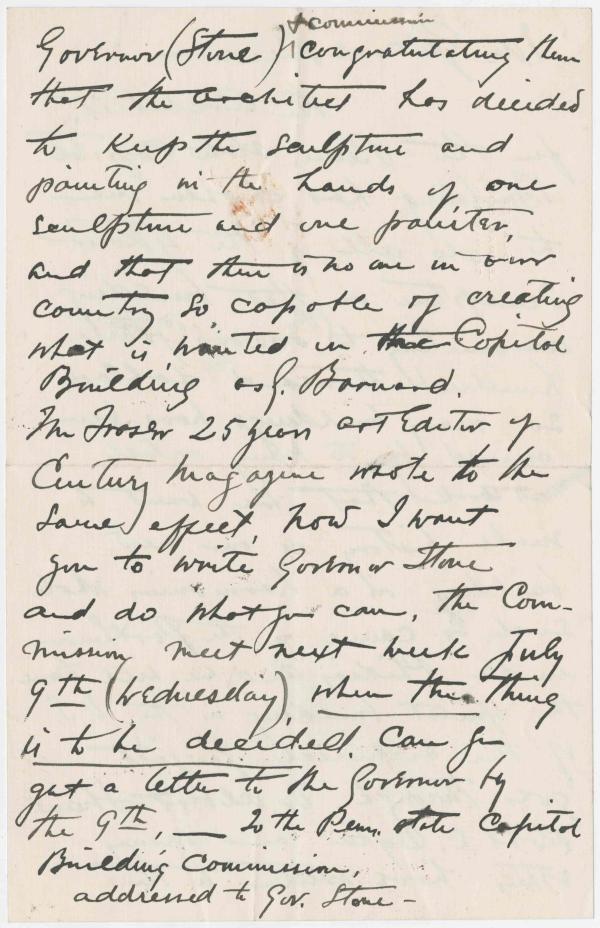 & commission
Governor (Stone) congratulating them
that the architect has decided
to keep the sculpture and
painting in the hands of one
sculpture and one painter,
and that there is no one in our
country so capable of creating
what is wanted in the Capitol
Building as G. Barnard.
Mr Fraser 25 years art Editor of
Century Magazine wrote to the
same effect, now I want
you to write Governor Stone
and do what you can, the Com-
mission meet next week July
9th (Wednesday), when the thing
is to be decided. Can you
get a letter to the Governor by
the 9th, — To the Penn. state Capitol
Building Commission,
addressed to Gov. Stone —